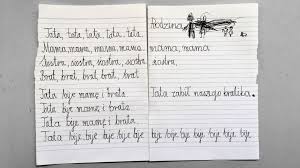 Tata, tata, tata, tata, tata
Mama, mama, mama, mama
Siostra, siostra, siostra, siostra
Brat, brat, brat, brat
Tata bije mamę i brata
Tata bije mamę i brata
Tata bije mamę i brata
Tata bije bije bije bije bije
Rodzina
mama, mama
siostra,
Tata zabił naszego bratika.
bije bije bije bije bije bije